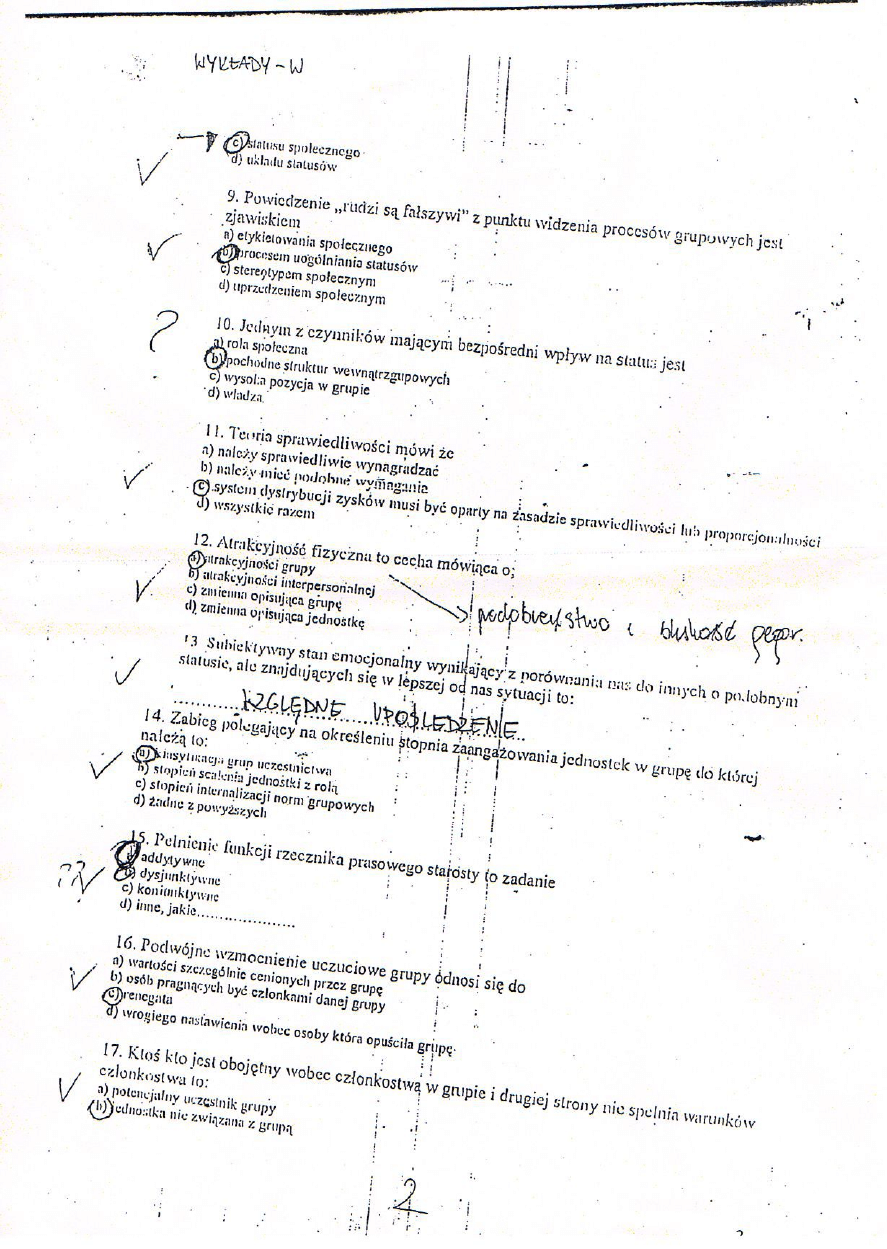 WYKŁADY - W
c) statusu społecznego
d) układu statusów
9. Powiedzenie „rudzi są fałszywi” z punktu widzenia procesów grupowych jest
zjawiskiem
a) etykietowania społecznego
b) procesem uogólniania statusów
c) stereotypem społecznym
d) uprzedzeniem społecznym
?
10. Jednym z czynników mającym bezpośredni wpływ na status jest
a) rola społeczna
b) pochodne struktur wewnątrzgupowych
c) wysoka pozycja w grupie
d) władza
11. Teoria sprawiedliwości mówi że
a) należy sprawiedliwie wynagradzać
b) należy mieć podobne wymagania
c) system dystrybucji zysków musi być oparty na zasadzie sprawiedliwości lub proporcjonalności
d) wszystkie razem
12. Atrakcyjność fizyczna to cecha mówiąca o;
a) atrakcyjności grupy
b) atrakcyjności interpersonalnej
c) zmienna opisująca grupę
d) zmienna opisująca jednostkę
podobieństwo i bliskość
13 Subiektywny stan emocjonalny wynikający z porównania nas do innych o podobnym
statusie, ale znajdujących się w lepszej od nas sytuacji to:
WZGLĘDNE UPOŚLEDZENIE
14. Zabieg polegający na określeniu stopnia zaangażowania jednostek w grupę do której
należą to:
a) klasyfikacja grup uczestnictwa
b) stopień scalenia jednostki z rolą
c) stopień internalizacji norm grupowych
d) żadne z powyższych
15. Pełnienie funkcji rzecznika prasowego starosty to zadanie
a) addytywne
b) dysjunktywne
c) koniunktywne
d) inne, jakie......................
??
16. Podwójne wzmocnienie uczuciowe grupy odnosi się do
a) wartości szczególnie cenionych przez grupę
b) osób pragnących być członkami danej grupy
c) renegata
d) wrogiego nastawienia wobec osoby która opuściła grupę
17. Ktoś kto jest obojętny wobec członkostwa w grupie i drugiej strony nie spełnia warunków
członkostwa to:
a) potencjalny uczestnik grupy
b) jednostka nie związana z grupą
2